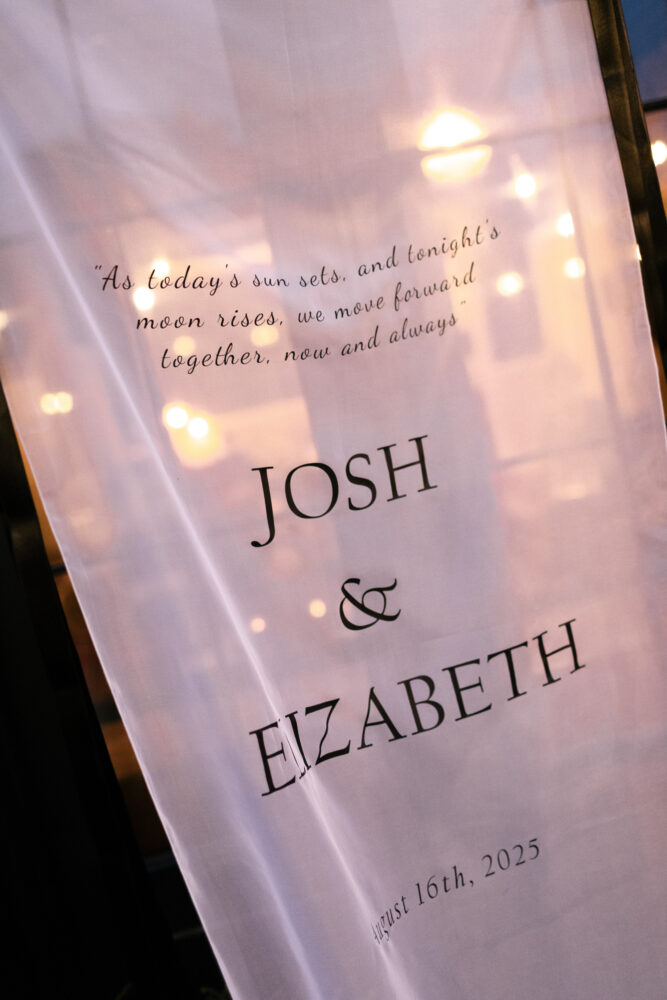 "As today's sun sets, and tonight's
moon rises, we move forward
together, now and always"
JOSH
&
ELIZABETH
August 16th, 2025